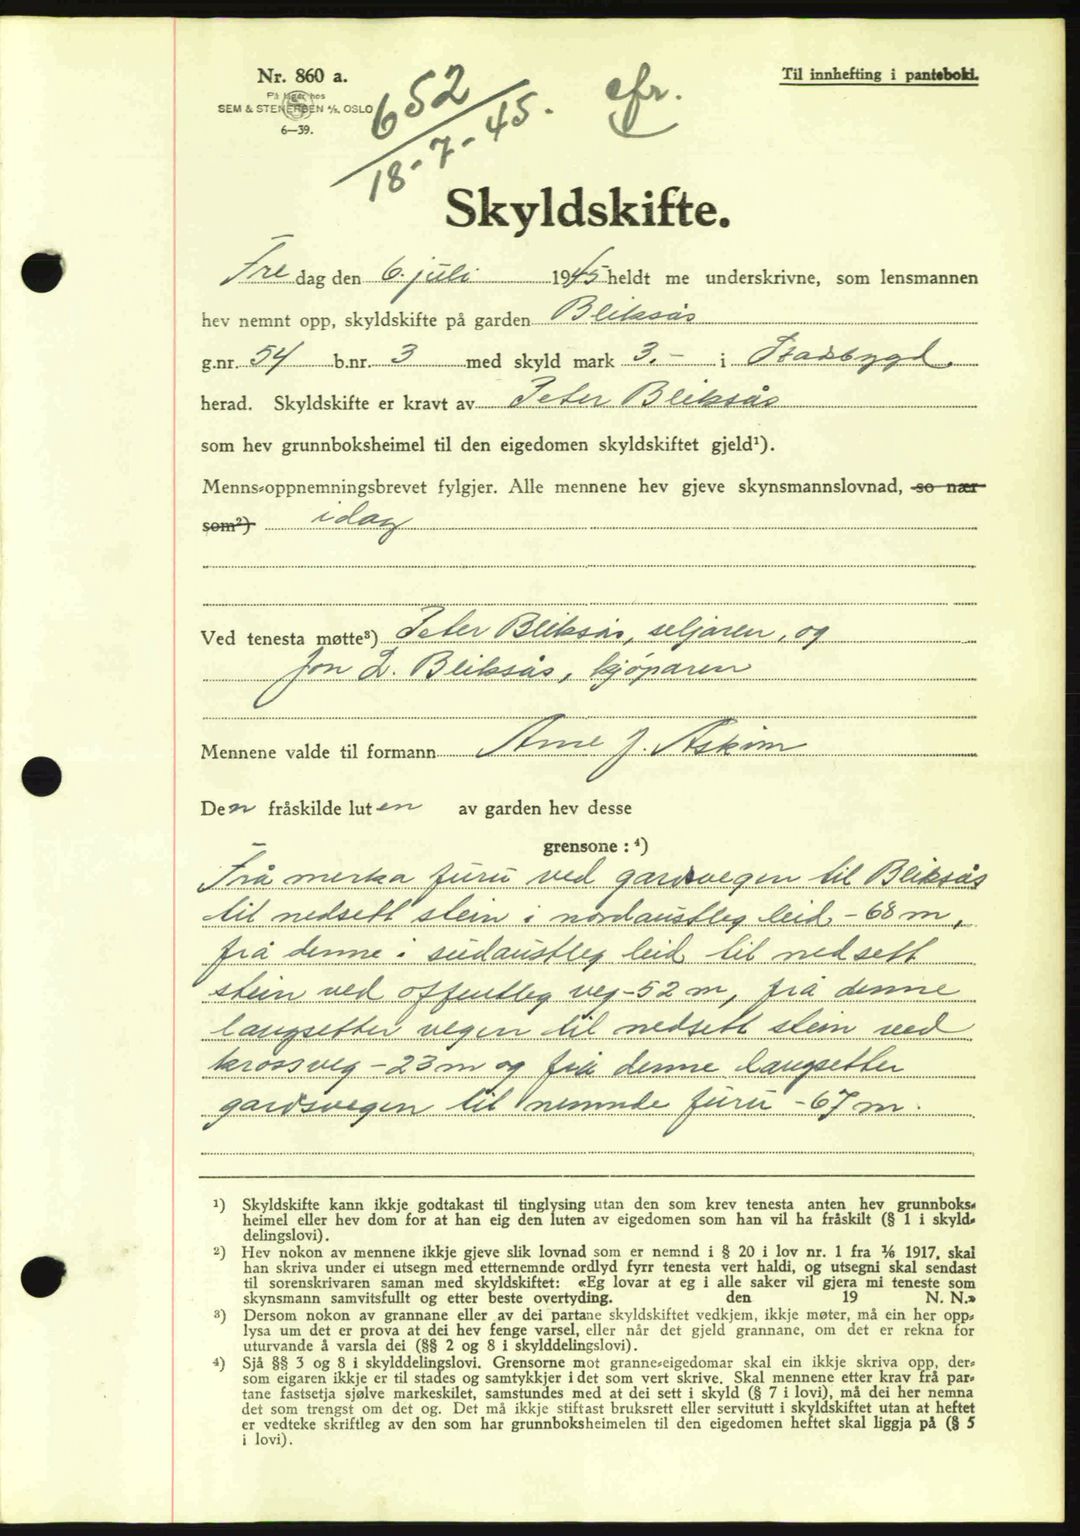 Nr. 860 a.
På lager hos
SEM & STENERSEN A/S. OSLO
6—39.
652
18-7-45.
cfr.
Til innhefting i panteboki.
Skyldskifte.
Fre dag den 6. juli 1945 heldt me underskrivne, som lensmannen
hev nemnt opp, skyldskifte på garden Bliksås
g.nr. 54 b.nr. 3 med skyld mark 3.- i Stadsbygd
herad. Skyldskifte er kravt av Peter Bliksås
som hev grunnboksheimel til den eigedomen skyldskiftet gjeld¹).
Menns-oppnemningsbrevet fylgjer. Alle mennene hev gjeve skynsmannslovnad, so nær
som²) idag
Ved tenesta møtte³) Peter Bliksås, seljaren, og
Jon L. Bliksås, kjøparen
Mennene valde til formann Arne J. Askim
Den fråskilde luten av garden hev desse
grensone : ⁴)
Frå merka furu ved gardsvegen til Bliksås
til nedsett stein i nordaustleg leid - 68 m,
frå denne i südaustleg leid til nedsett
stein ved offentleg veg - 52 m, frå denne
langsetter vegen til nedsett stein ved
krossveg - 23 m og frå denne langsetter
gardsvegen til nemnde furu - 67 m.
¹) Skyldskifte kann ikkje godtakast til tinglysing utan den som krev tenesta anten hev grunnboks-
heimel eller hev dom for at han eig den luten av eigedomen som han vil ha fråskilt (§ 1 i skyld-
delingslovi).
²) Hev nokon av mennene ikkje gjeve slik lovnad som er nemnd i § 20 i lov nr. 1 fra ⅙ 1917, skal
han skriva under ei utsegn med etternemnde ordlyd fyrr tenesta vert haldi, og utsegni skal sendast
til sorenskrivaren saman med skyldskiftet: «Eg lovar at eg i alle saker vil gjera mi teneste som
skynsmann samvitsfullt og etter beste overtyding. den 19 N. N.»
³) Dersom nokon av grannane eller av dei partane skyldskiftet vedkjem, ikkje møter, må ein her opp-
lysa um det er prova at dei hev fenge varsel, eller når det gjeld grannane, om det er rekna for
uturvande å varsla dei (§§ 2 og 8 i skylddelingslovi).
⁴) Sjå §§ 3 og 8 i skylddelingslovi. Grensorne mot granne-eigedomar skal ein ikkje skriva opp, der-
som eigaren ikkje er til stades og samtykkjer i det som vert skrive. Skal mennene etter krav frå par-
tane fastsetja sjølve markeskilet, samstundes med at dei sett i skyld (§ 7 i lovi), må dei her nemna
det som trengst om det og. Det må ikkje stiftast bruksrett eller servitutt i skyldskiftet utan at heftet
er vedteke skriftleg av den som har grunnboksheimelen til den eigedomen heftet skal liggja på (§ 5
i lovi).